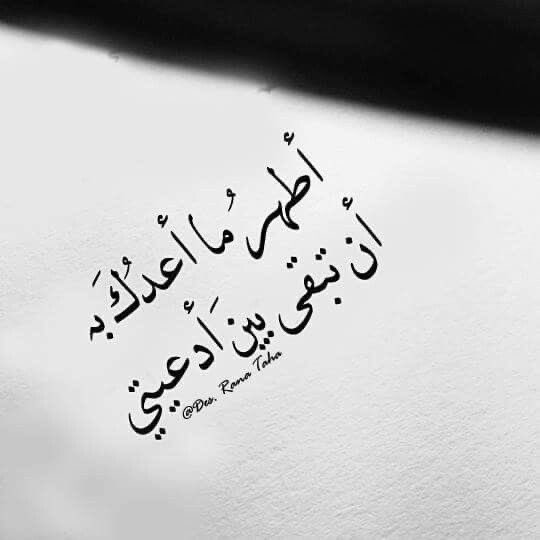 أطهرُ ما أعدُكَ به
أن تبقى بين أدعيتي
@Des. Rana Taha